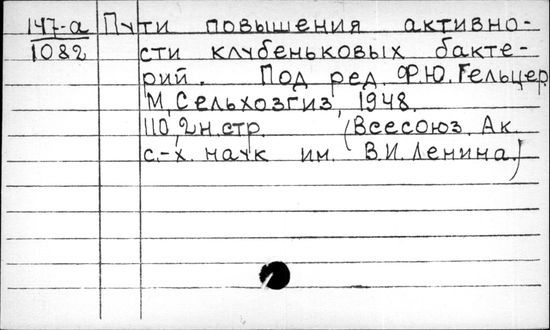 147-а Пути повышения активно-
1082 сти клубеньковых бакте-
рий. Под ред. Ф.Ю. Гельцер
М, Сельхозгиз, 1948.
110, 2н.стр. (Всесоюз. Ак.
с.-х. наук им. В.И. Ленина.)